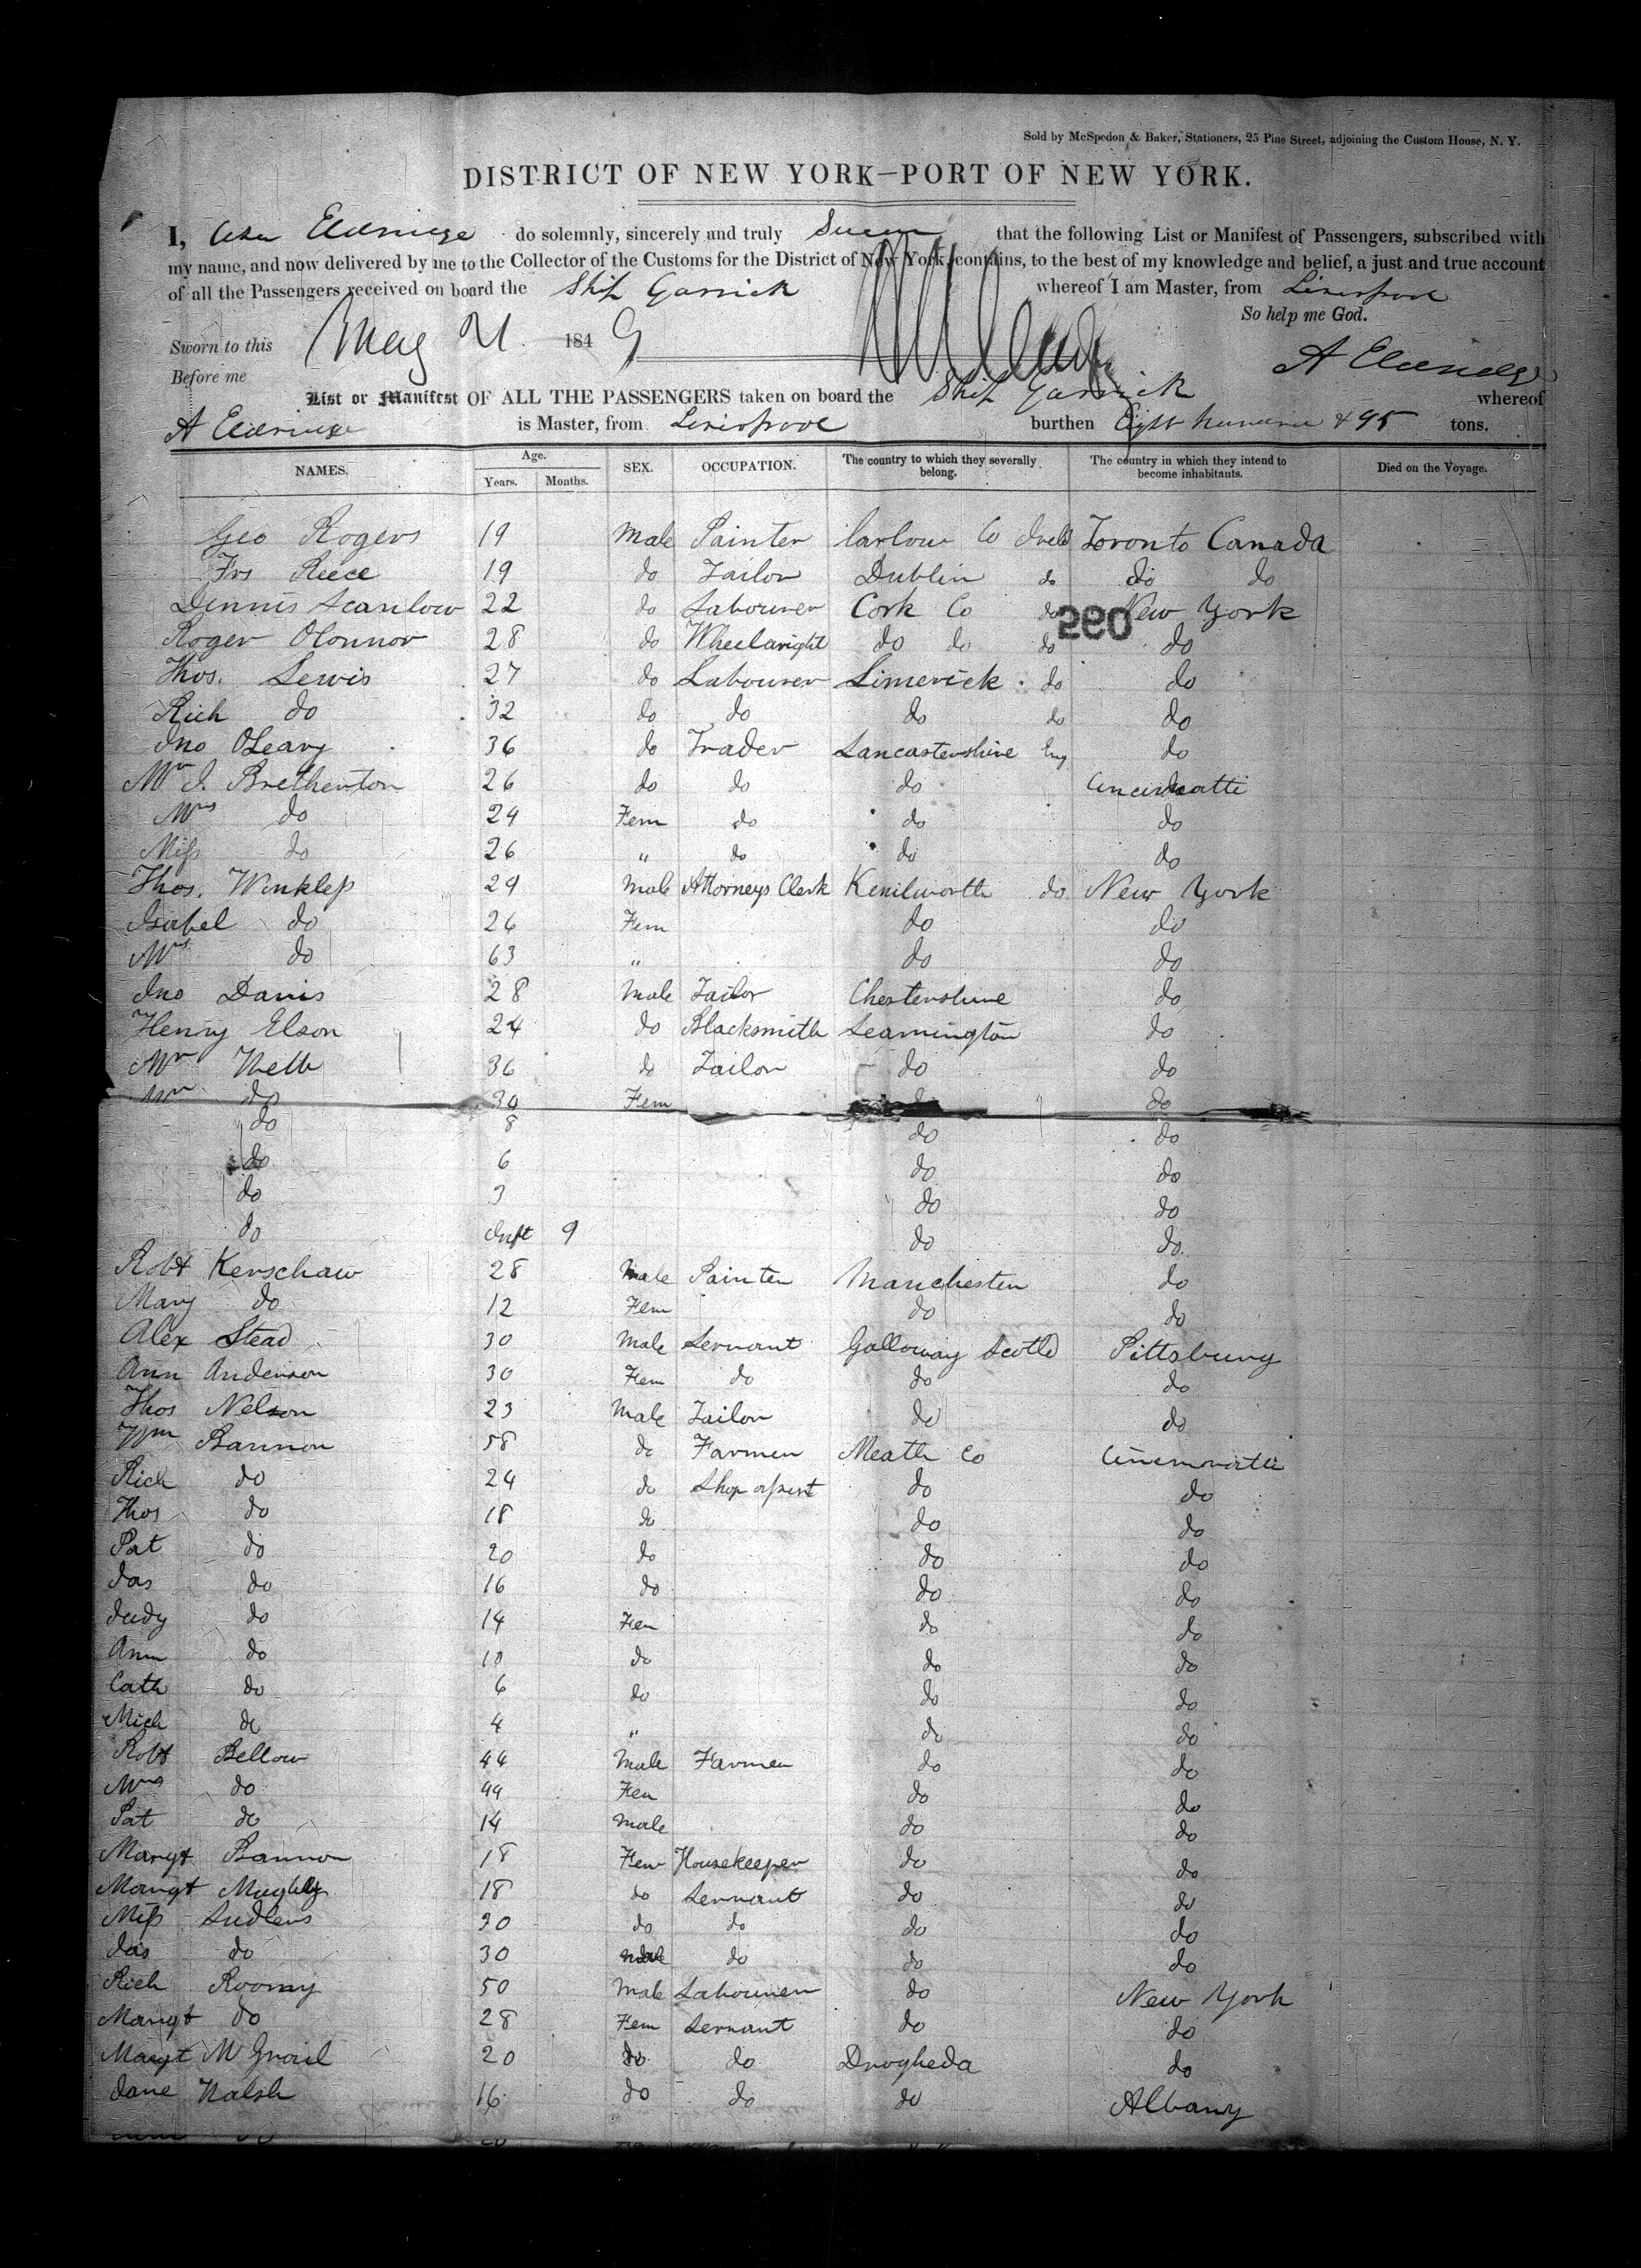 Sold by McSpedon & Baker, Stationers, 25 Pine Street, adjoining the Custom House, N. Y.
DISTRICT OF NEW YORK—PORT OF NEW YORK.
I, Asa Eldridge do solemnly, sincerely and truly Swear that the following List or Manifest of Passengers, subscribed with
my name, and now delivered by me to the Collector of the Customs for the District of New York, contains, to the best of my knowledge and belief, a just and true account
of all the Passengers received on board the Ship Garrick whereof I am Master, from Liverpool
So help me God.
Sworn to this May 21 1849
A Eldridge
Before me
List or Manifest OF ALL THE PASSENGERS taken on board the Ship Garrick whereof
A Eldridge is Master, from Liverpool burthen Eight hundred & 95 tons.
NAMES. Age. Years. Months. SEX. OCCUPATION. The country to which they severally belong. The country in which they intend to become inhabitants. Died on the Voyage.
Geo Rogers 19 Male Painter Carlow Co Ireld Toronto Canada
Frs Reece 19 do Tailor Dublin do do do
Dennis Scanlow 22 do Labourer Cork Co do New York
590
Roger OConnor 28 do Wheelwright do do do do
Thos. Lewis 27 do Labourer Limerick do do
Rich do 32 do do do do do
Jno OLeary 36 do Trader Lancastershire Eng do
Mr J. Bretherton 26 do do do Cincinnatti
Mrs do 24 Fem do do do
Miss do 26 " do do do
Thos. Winkless 29 Male Attorneys Clerk Kenilworth do New York
Isabel do 26 Fem do do
Mrs do 63 " do do
Jno Davis 28 Male Tailor Chestershire do
Henry Elson 24 do Blacksmith Leamington do
Mr Webb 36 do Tailor do do
do 34 Fem do do
do 8 do do
do 6 do do
do 3 do do
do Inft 9 do do
Robt Kerschaw 28 Male Painter Manchester do
Mary do 12 Fem do do
Alex Stead 30 Male Servant Galloway Scotld Pittsburg
Ann Anderson 30 Fem do do do
Thos Nelson 23 Male Tailor do do
Wm Bannon 58 do Farmer Meath Co Cincinnatti
Rich do 24 do Shop assist do do
Thos do 18 do do do
Pat do 20 do do do
Jas do 16 do do do
Judy do 14 Fem do do
Ann do 10 do do do
Cath do 6 do do do
Mich do 4 " do do
Robt Bellow 44 Male Farmer do do
Mrs do 44 Fem do do
Pat do 14 Male do do
Margt Bannon 18 Fem Housekeeper do do
Margt 18 do Servant do do
Miss Sudlens 20 do do do do
Jas do 30 Male do do do
Rich Roomy 50 Male Labourer do New York
Margt do 28 Fem Servant do do
Margt McGrail 20 do do Drogheda do
Jane Walsh 16 do do do Albany